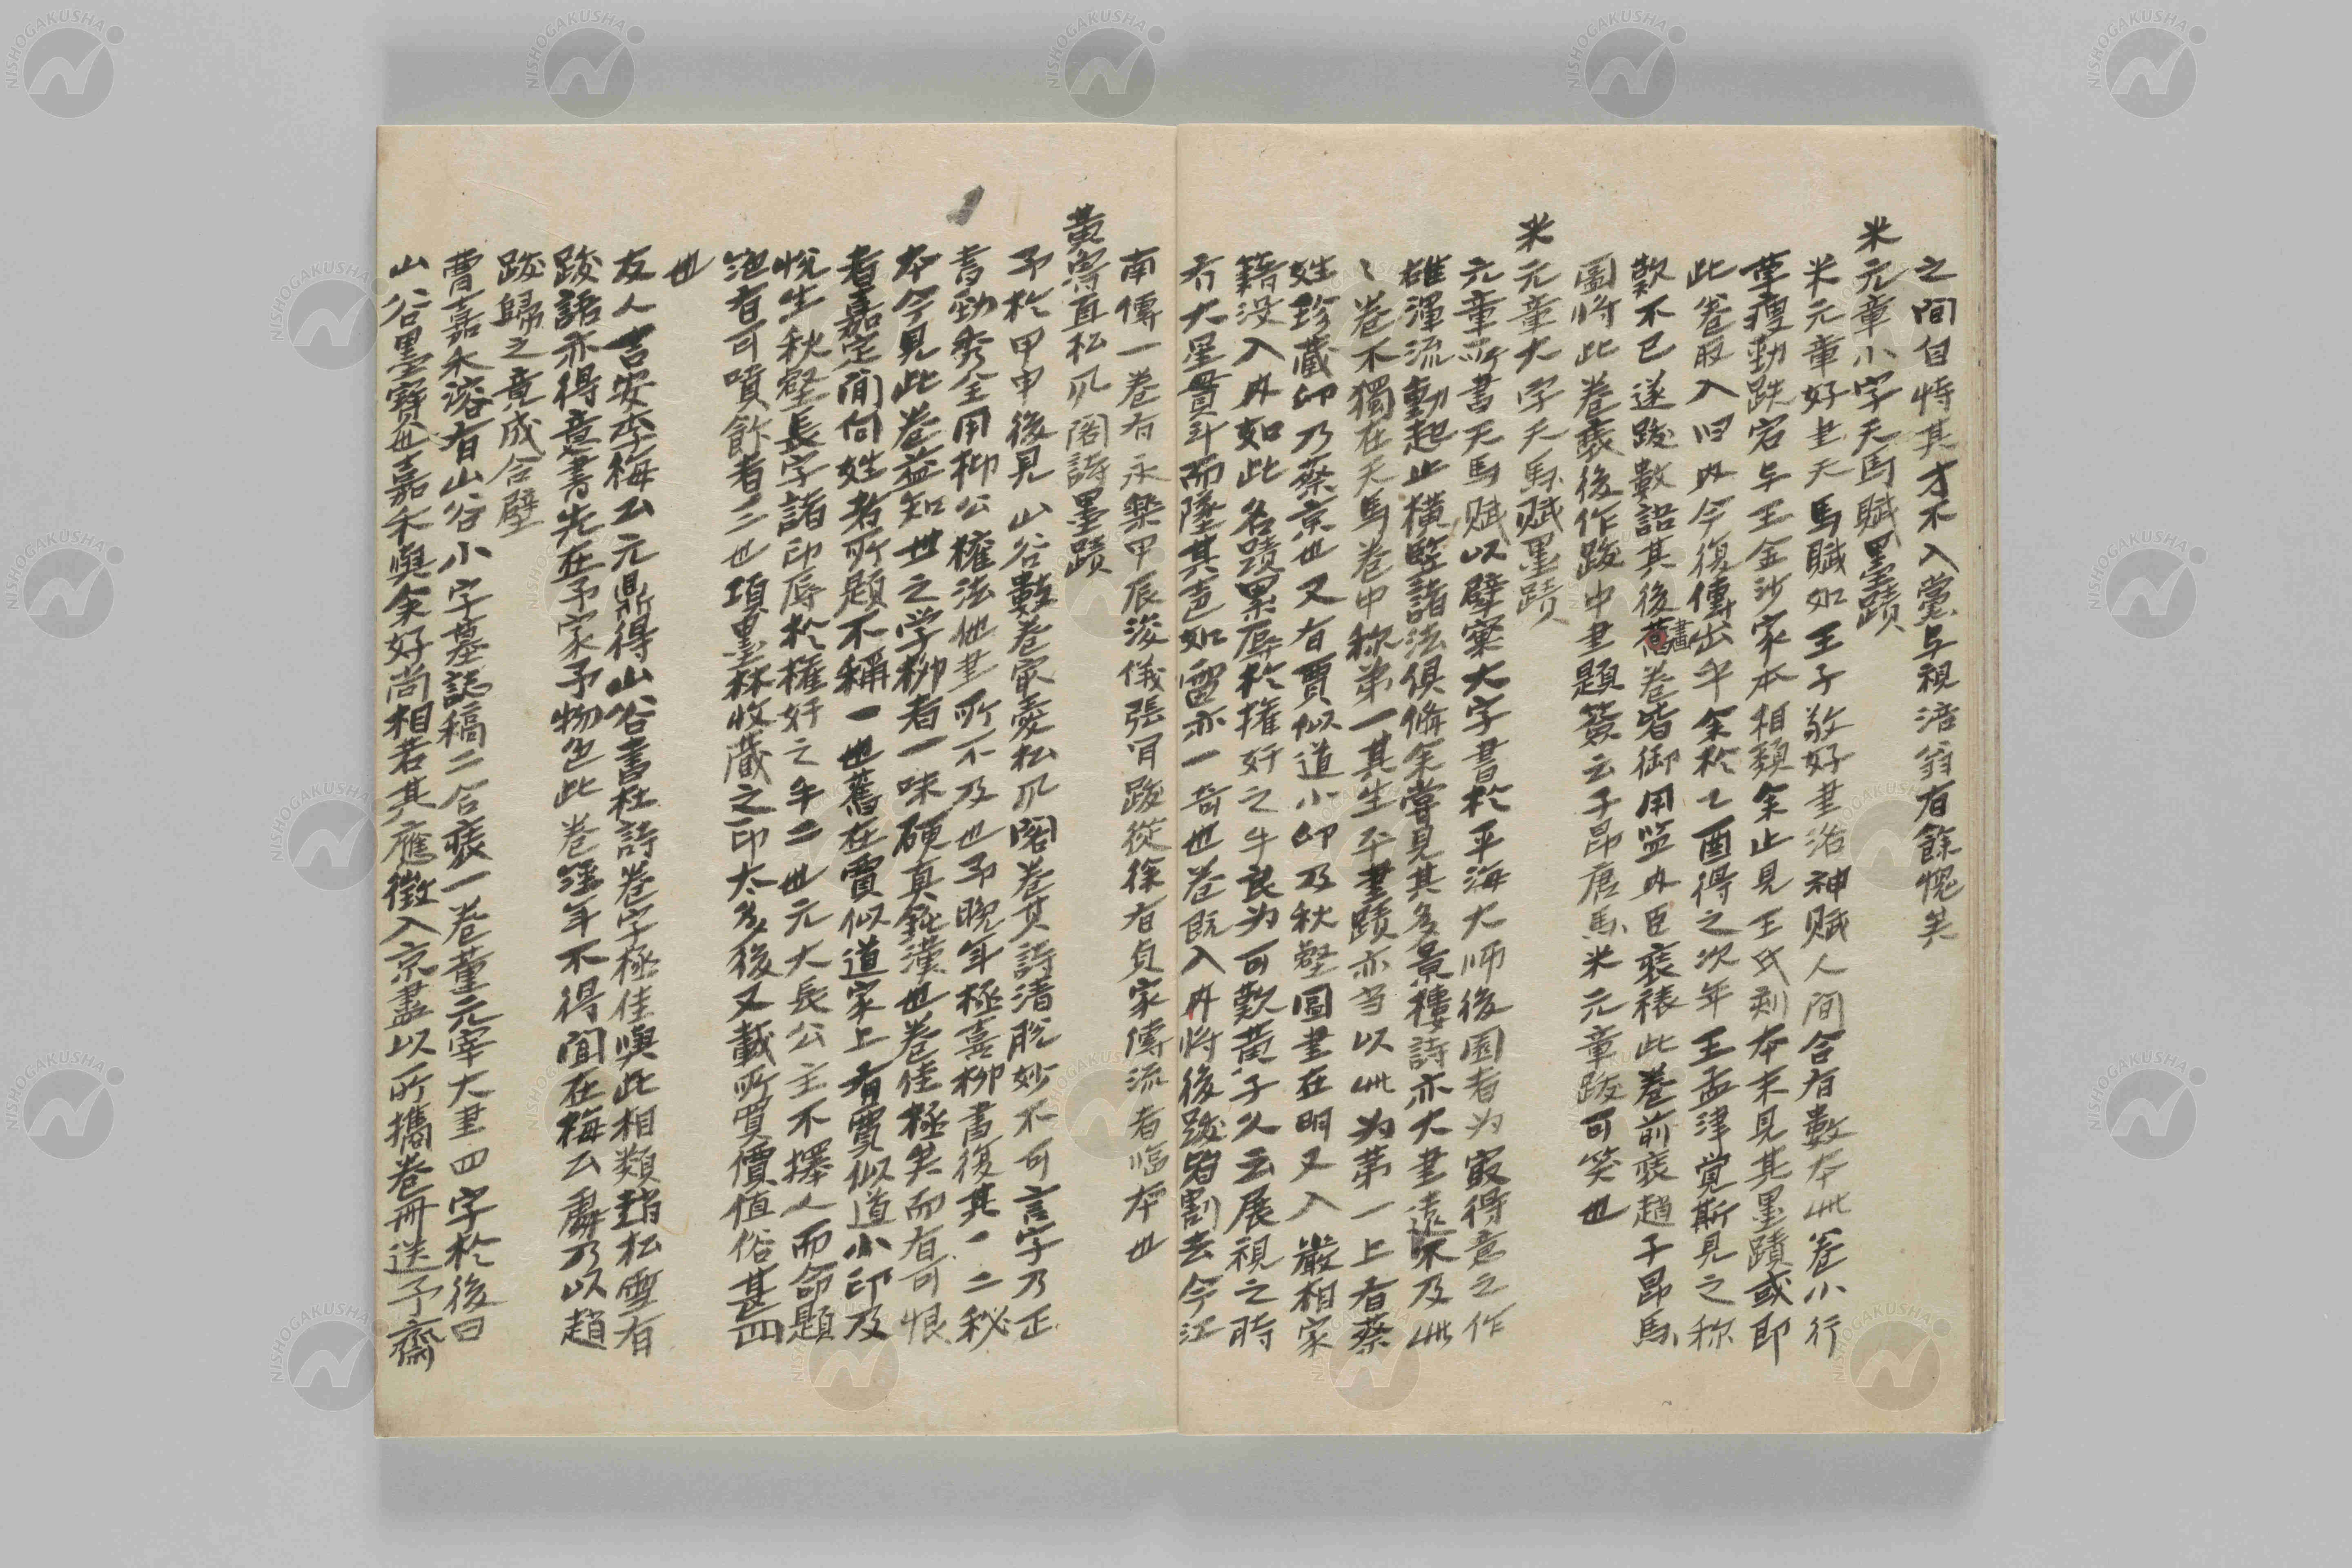 之間自恃其才不入黨与視涪翁有餘愧矣
米元章小字天馬賦墨蹟
米元章好書天馬賦如王子敬好書洛神賦人間合有數本此卷小行
草瘦勁跌宕与王金沙家本相類余止見王氏刻本未見其墨蹟或即
此卷收入旧内今復傳出乎余於乙酉得之次年王孟津覚斯見之称
歎不已遂跋數語其後舊書卷皆御用监内臣裝裱此卷前裝趙子昂馬
圖将此卷裝後作跋中書題簽云子昂唐馬米元章跋可笑也
米元章大字天馬賦墨蹟
元章所書天馬賦以擘窠大字書於平海大师後園者为寂得意之作
雄渾流動起止橫竪諸法俱備余嘗見其多景樓詩亦大書遠不及此
〻卷不獨在天馬卷中称第一其生平書蹟亦当以此为第一上有蔡
姓珍蔵印乃蔡京也又有賈似道小印及秋壑圖書在明又入嚴相家
籍没入内如此名蹟累辱於權奸之手良为可歎黄子久云展視之時
有大星貫斗而墜其声如雷亦一奇也卷既入内将後跋皆割去今江
南傳一卷有永樂甲辰浚儀張肎跋從徐有貞家傳流者臨本也
黄魯直松爪閣詩墨蹟
予於甲申後見山谷數卷寂愛松爪閣卷其詩清脫妙不可言字乃正
書勁秀全用柳公權法他書所不及也予晚年極喜柳書復其一二秘
本今見此卷益知世之学柳者一味硬真鈍漢也卷佳極矣而有可恨
者嘉定間向姓者所題不稱一也舊在賈似道家上有賈似道小印及
悅生秋壑長字諸印辱於權奸之手二也元大長公主不擇人而命題
迤有可噴飯者三也項墨林收蔵之印太多後又載所買價值俗甚四
也
友人吉安李梅公元鼎得山谷書杜詩卷字極佳與此相類趙松雪有
跋語亦得意書先在予家予物色此卷經年不得聞在梅公䖏乃以趙
跋歸之竟成合璧
曹嘉禾溶有山谷小字墓誌稿二合裝一卷董元宰大書四字於後曰
山谷墨寶也嘉禾與余好尚相若其應徵入京盡以所攜卷冊送予齋